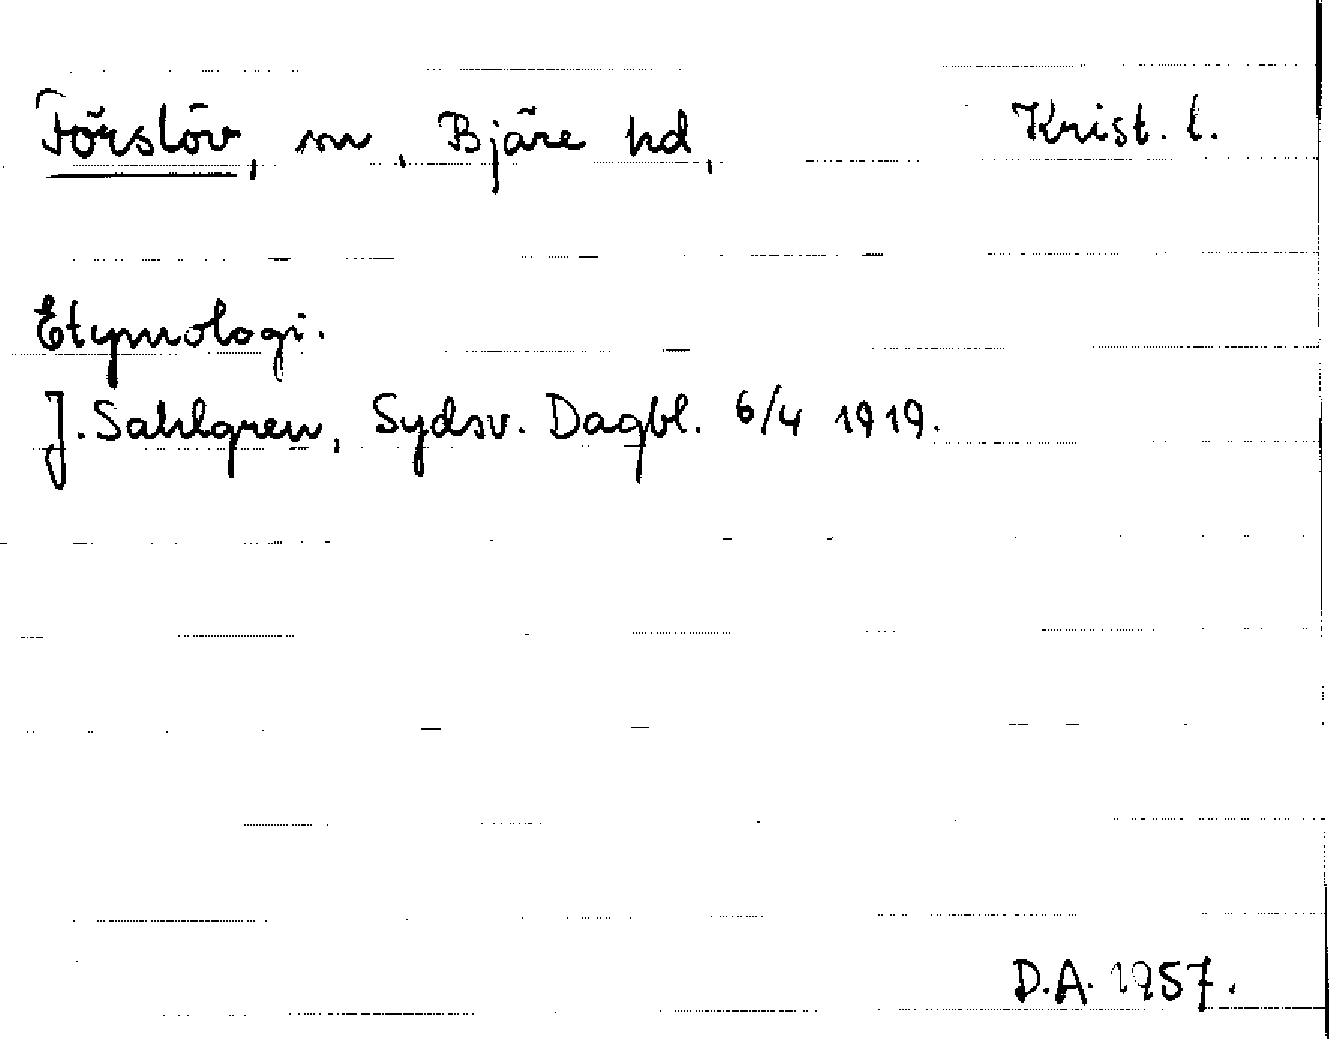 Förslöv, sn, Bjäre hd, Krist. l.
Etymologi.
J. Sahlgren, Sydsv. Dagbl. 6/4 1919.
D.A. 1957.